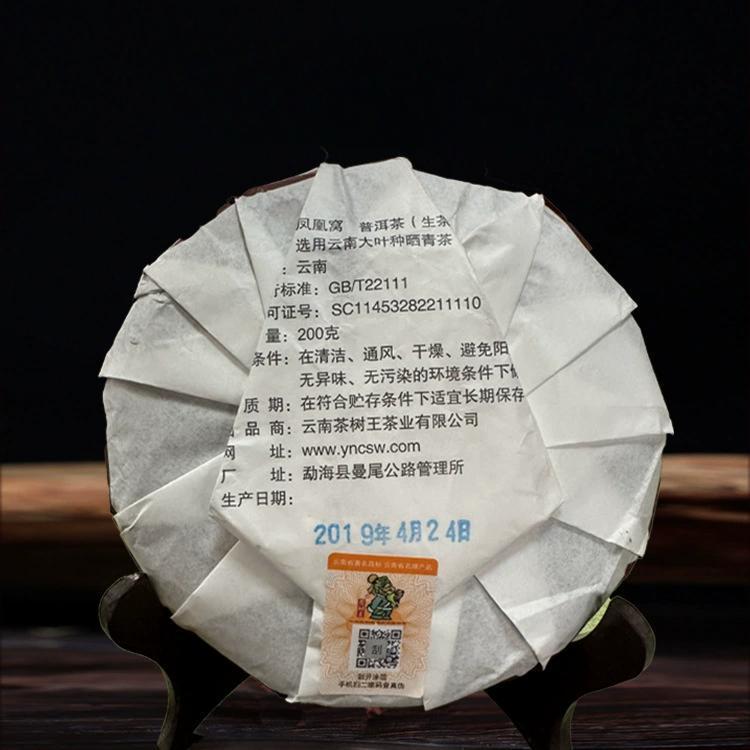 凤凰窝 普洱茶(生茶
选用云南大叶种晒青茶
：云南
行标准：GB/T22111
可证号：SC11453282211110
量：200克
条件：在清洁、通风、干燥、避免阳
无异味、无污染的环境条件下
质 期：在符合贮存条件下适宜长期保存
品 商：云南茶树王茶业有限公司
网 址：www.yncsw.com
厂 址：勐海县曼尾公路管理所
生产日期：
2019年4月24日
云南省著名商标 云南省名牌产品
刮
刮开涂层
手机扫二维码查真伪